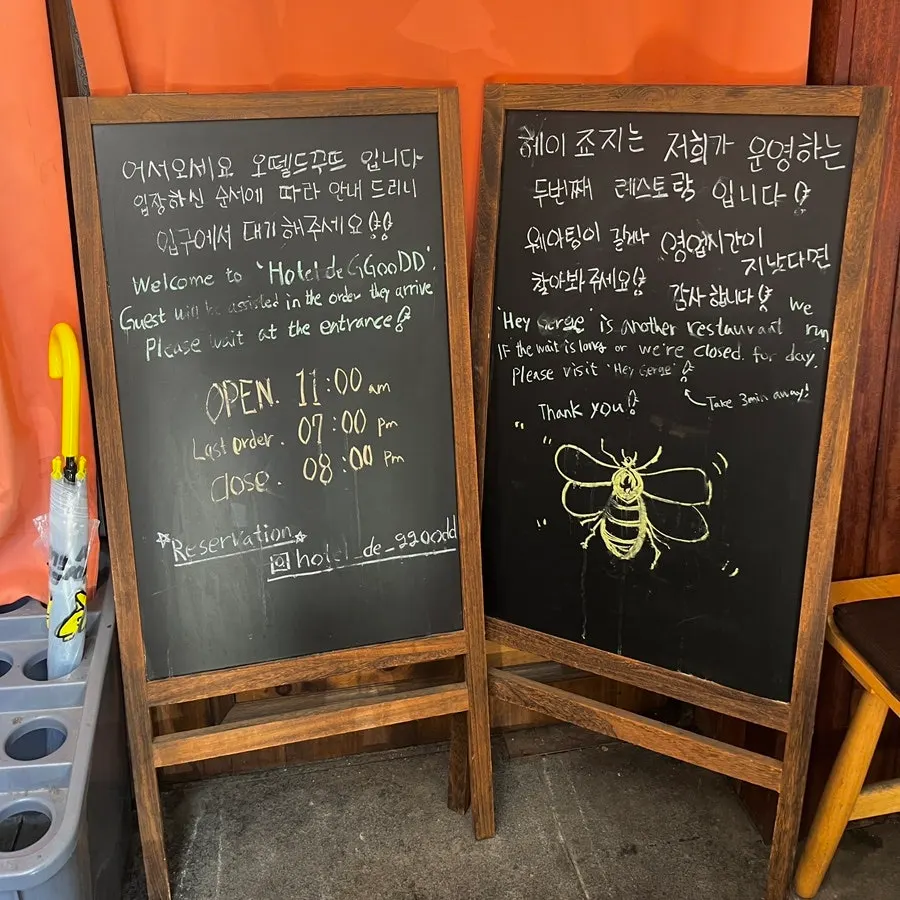 어서오세요 오뗄드꾸뜨 입니다
입장하신 순서에 따라 안내 드리니
입구에서 대기해주세요!!
Welcome to 'Hotel de GGooDD'.
Guest will be assisted in the order they arrive
Please wait at the entrance!
OPEN. 11:00 am
Last order. 07:00 pm
Close. 08:00 pm
☆Reservation☆
hotel_de_ggoodd
헤이 죠지는 저희가 운영하는
두번째 레스토랑 입니다!
웨이팅이 길거나 영업시간이
지났다면
찾아봐주세요! 감사합니다!
'Hey Gerge' is another restaurant we run
IF the wait is long or we're closed for day,
please visit 'Hey Gerge'!
Take 3min away!
Thank you!